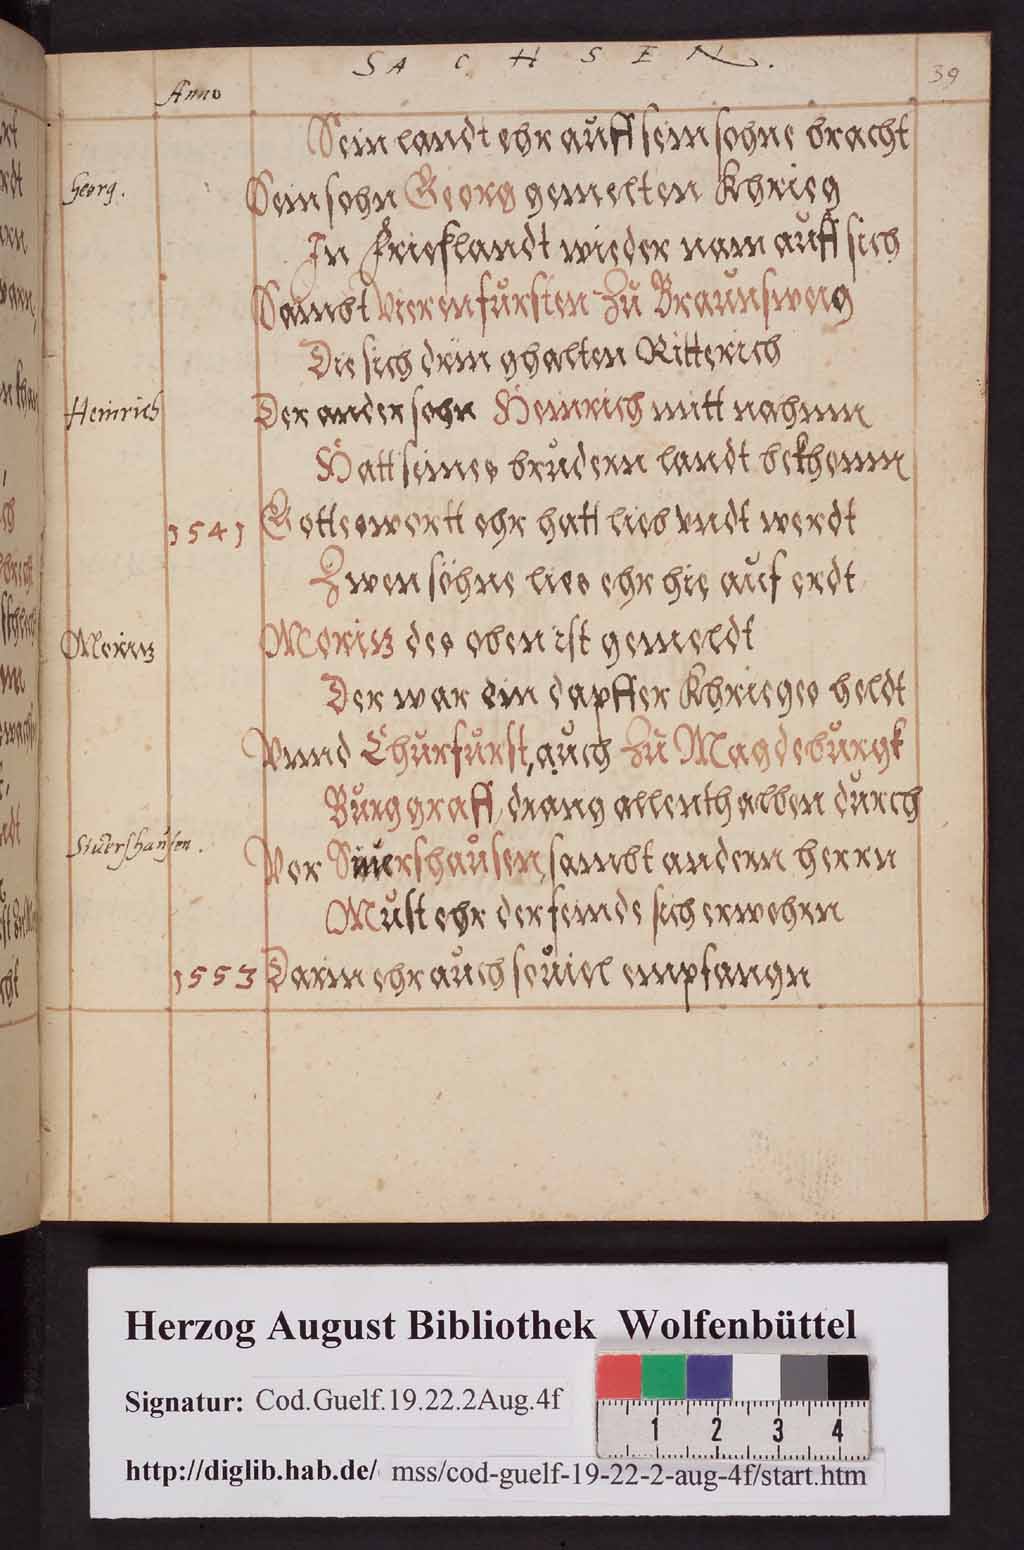 SACHSEN.
39
Anno
Sein landt ehr auff sein sohne bracht
Georg.
Sein sohn Georg gemelten Khrieg
In Frießlandt wieder nam auff sich
Sambt vieren fürsten Zu Braunsweig
Die sich drin ghalten Ritterich
Heinrich
Der ander sohn Heinrich mitt nahmn
Hatt seines brudern landt bekhomn
1541
Gottes wortt ehr hatt lieb vndt werdt
Zwen söhne lies ehr hie auf erdt
Moritz
Moritz des oben ist gemeldt
Der war ein dapffer Khrieges heldt
Vnnd Churfurst, auch Zu Magdeburgk
Burggraff, drang allenthalben durch
Siuershausen.
Vor Siuershausen, sambt andern herrn
Must ehr der feinde sich erwehrn
1553
Darin ehr auch souiel empfangn
Herzog August Bibliothek Wolfenbüttel
Signatur: Cod.Guelf.19.22.2Aug.4f
1 2 3 4
http://diglib.hab.de/ mss/cod-guelf-19-22-2-aug-4f/start.htm